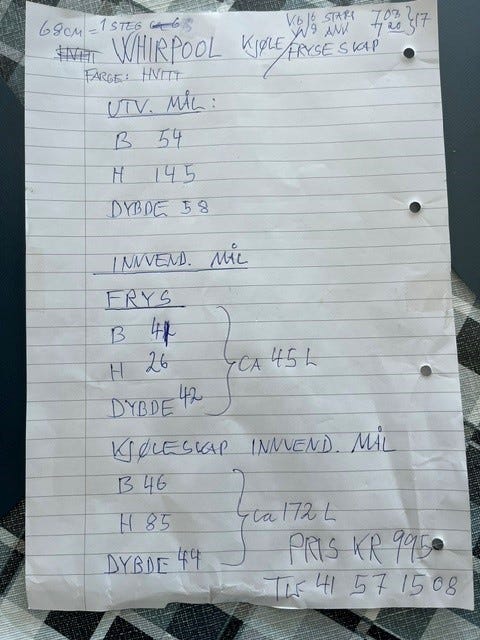 68CM = 1 STEG
WHIRPOOL KJØLE/FRYSESKAP
FARGE: HVITT
UTV. MÅL:
B 54
H 145
DYBDE 58
INNVEND. MÅL
FRYS
B 41
H 26
DYBDE 42
CA 45 L
KJØLESKAP INNVEND. MÅL
B 46
H 85
DYBDE 44
ca 172 L
PRIS KR 995
TLF 41 57 15 08